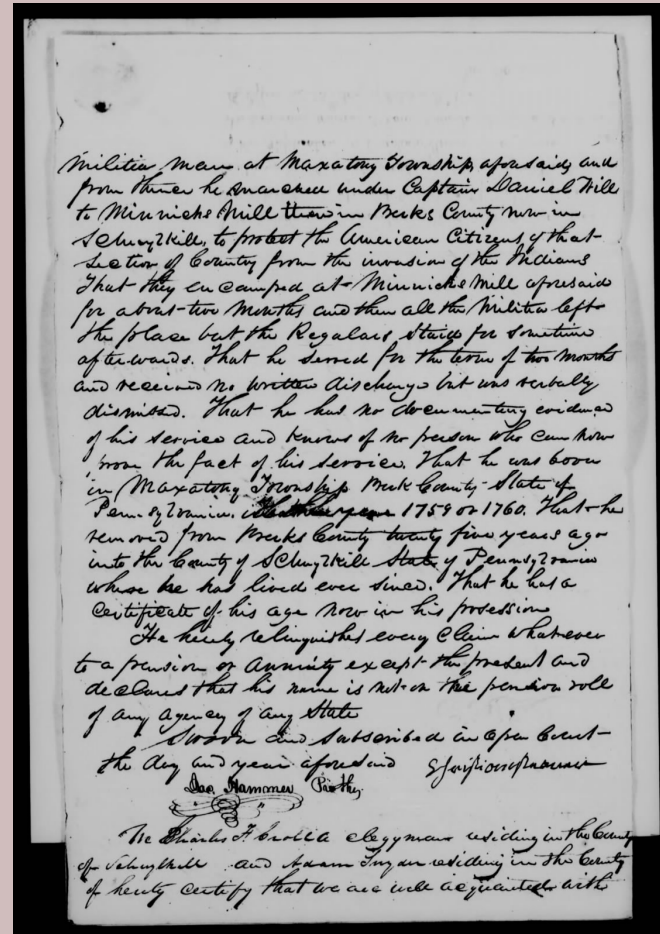 Militia man at Maxatony Township aforesaid and
from thence he marched under Captain Daniel Will
to Minnichs Mill then in Berks County now in
Schuylkill, to protect the American Citizens of that
Section of Country from the invasion of the Indians
That they encamped at Minnichs Mill aforesaid
for about two Months and then all the Militia left
the place but the Regulars staid for sometime
afterwards. That he served for the term of two months
and received no written discharge but was verbally
dismissed. That he has no documentary evidence
of his service and knows of no person who can now
prove the fact of his service. That he was born
in Maxatony Township Berk County State of
Pennsylvania. in the year 1759 or 1760. That he
removed from Berks County twenty five years ago
into the County of Schuylkill State of Pennsylvania
where he has lived ever since. That he has a
Certificate of his age now in his possession
He hereby relinquishes every claim whatever
to a pension or annuity except the present and
declares that his name is not on the pension roll
of any agency of any State
Sworn and Subscribed in open Court
the day and year aforesaid
Jas. Hammer Prothy.
We Charles F. a clergyman residing in the County
of Schuylkill and Adam residing in the County
of hereby certify that we are well acquainted with